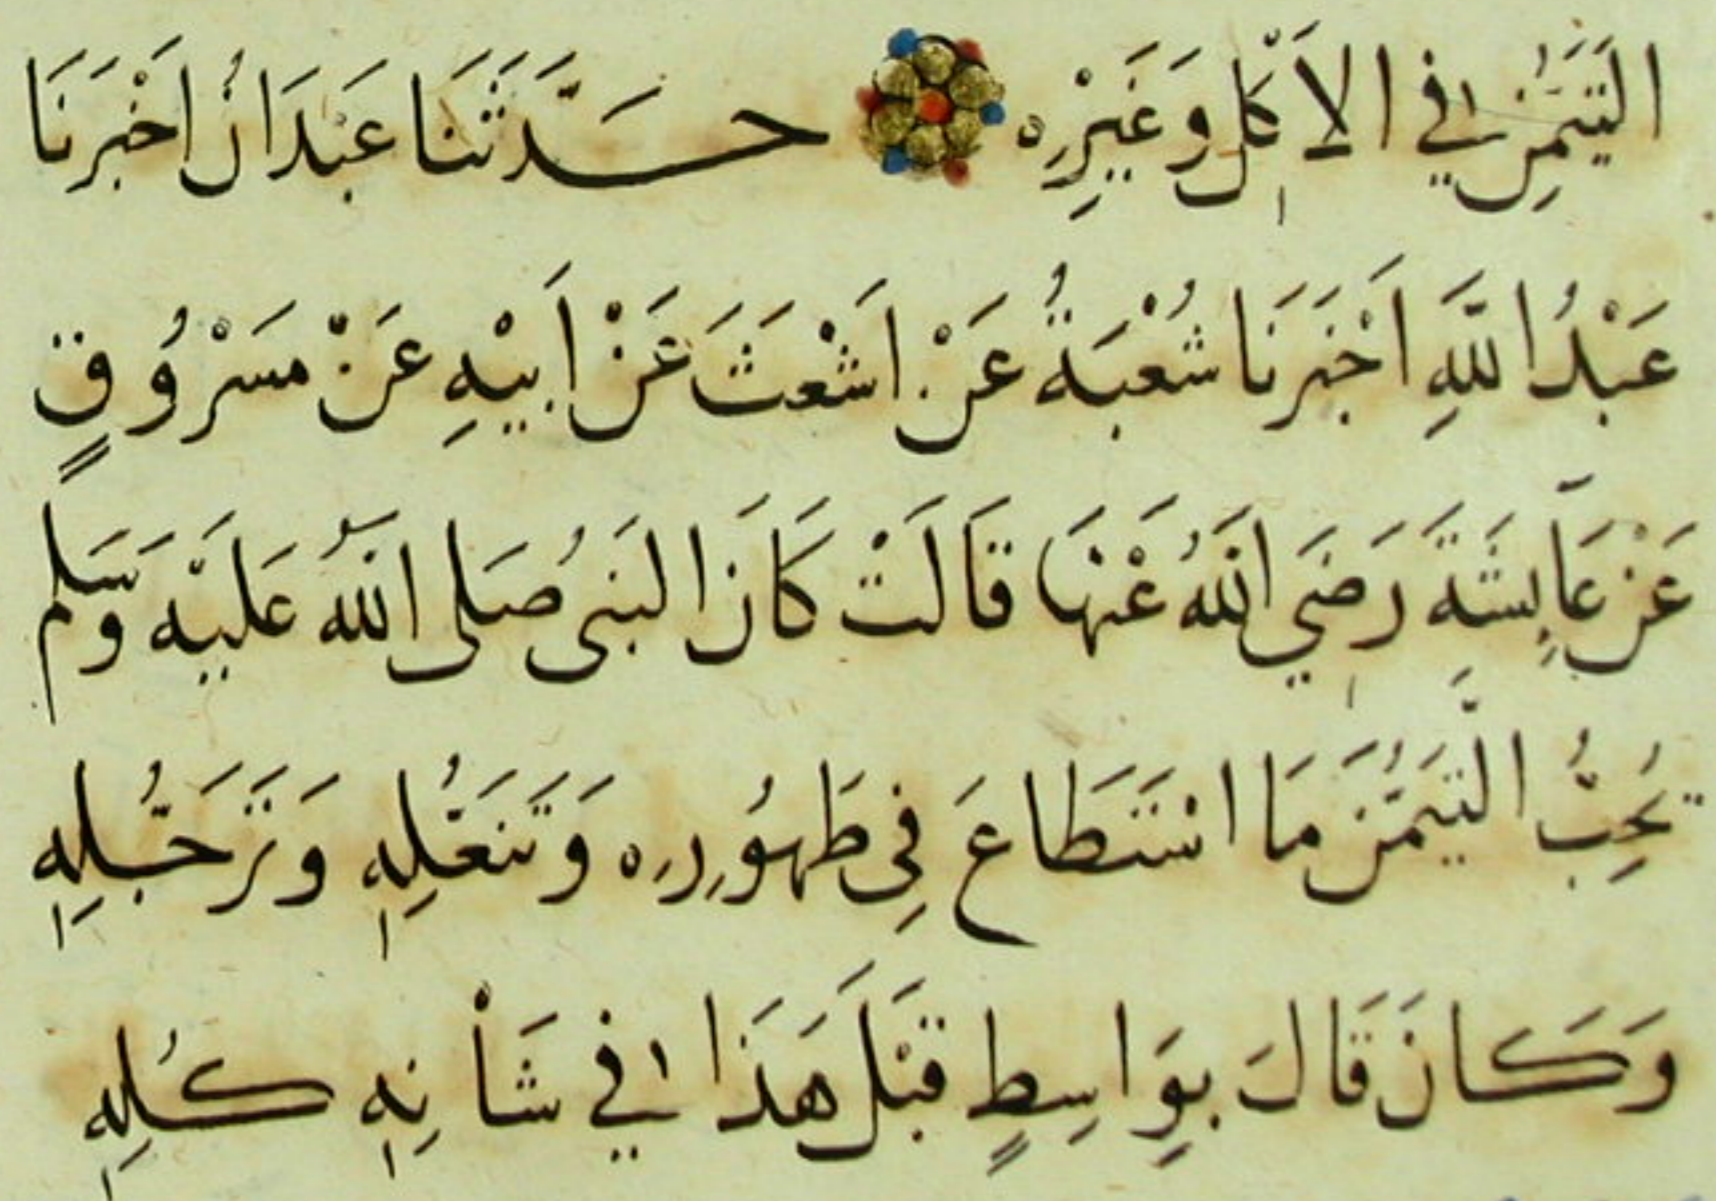 التَّيَمُّنِ فِي الْاَكْلِ وَغَيْرِهِ حَدَّثَنَا عَبْدَانُ اَخْبَرَنَا
عَبْدُ اللَّهِ اَخْبَرَنَا شُعْبَةُ عَنْ اَشْعَثَ عَنْ اَبِيْهِ عَنْ مَسْرُوقٍ
عَنْ عَايِشَةَ رَضِيَ اللَّهُ عَنْهَا قَالَتْ كَانَ النَّبِىُّ صَلَّى اللَّهُ عَلَيْهِ وَسَلَّمَ
يُحِبُّ التَّيَمُّنَ مَا اسْتَطَاعَ فِى طَهُورِهِ وَتَنَعُّلِهِ وَتَرَجُّلِهِ
وَكَانَ قَالَ بِوَاسِطٍ قَبْلَ هَذَا فِي شَأْنِهِ كُلِّهِ